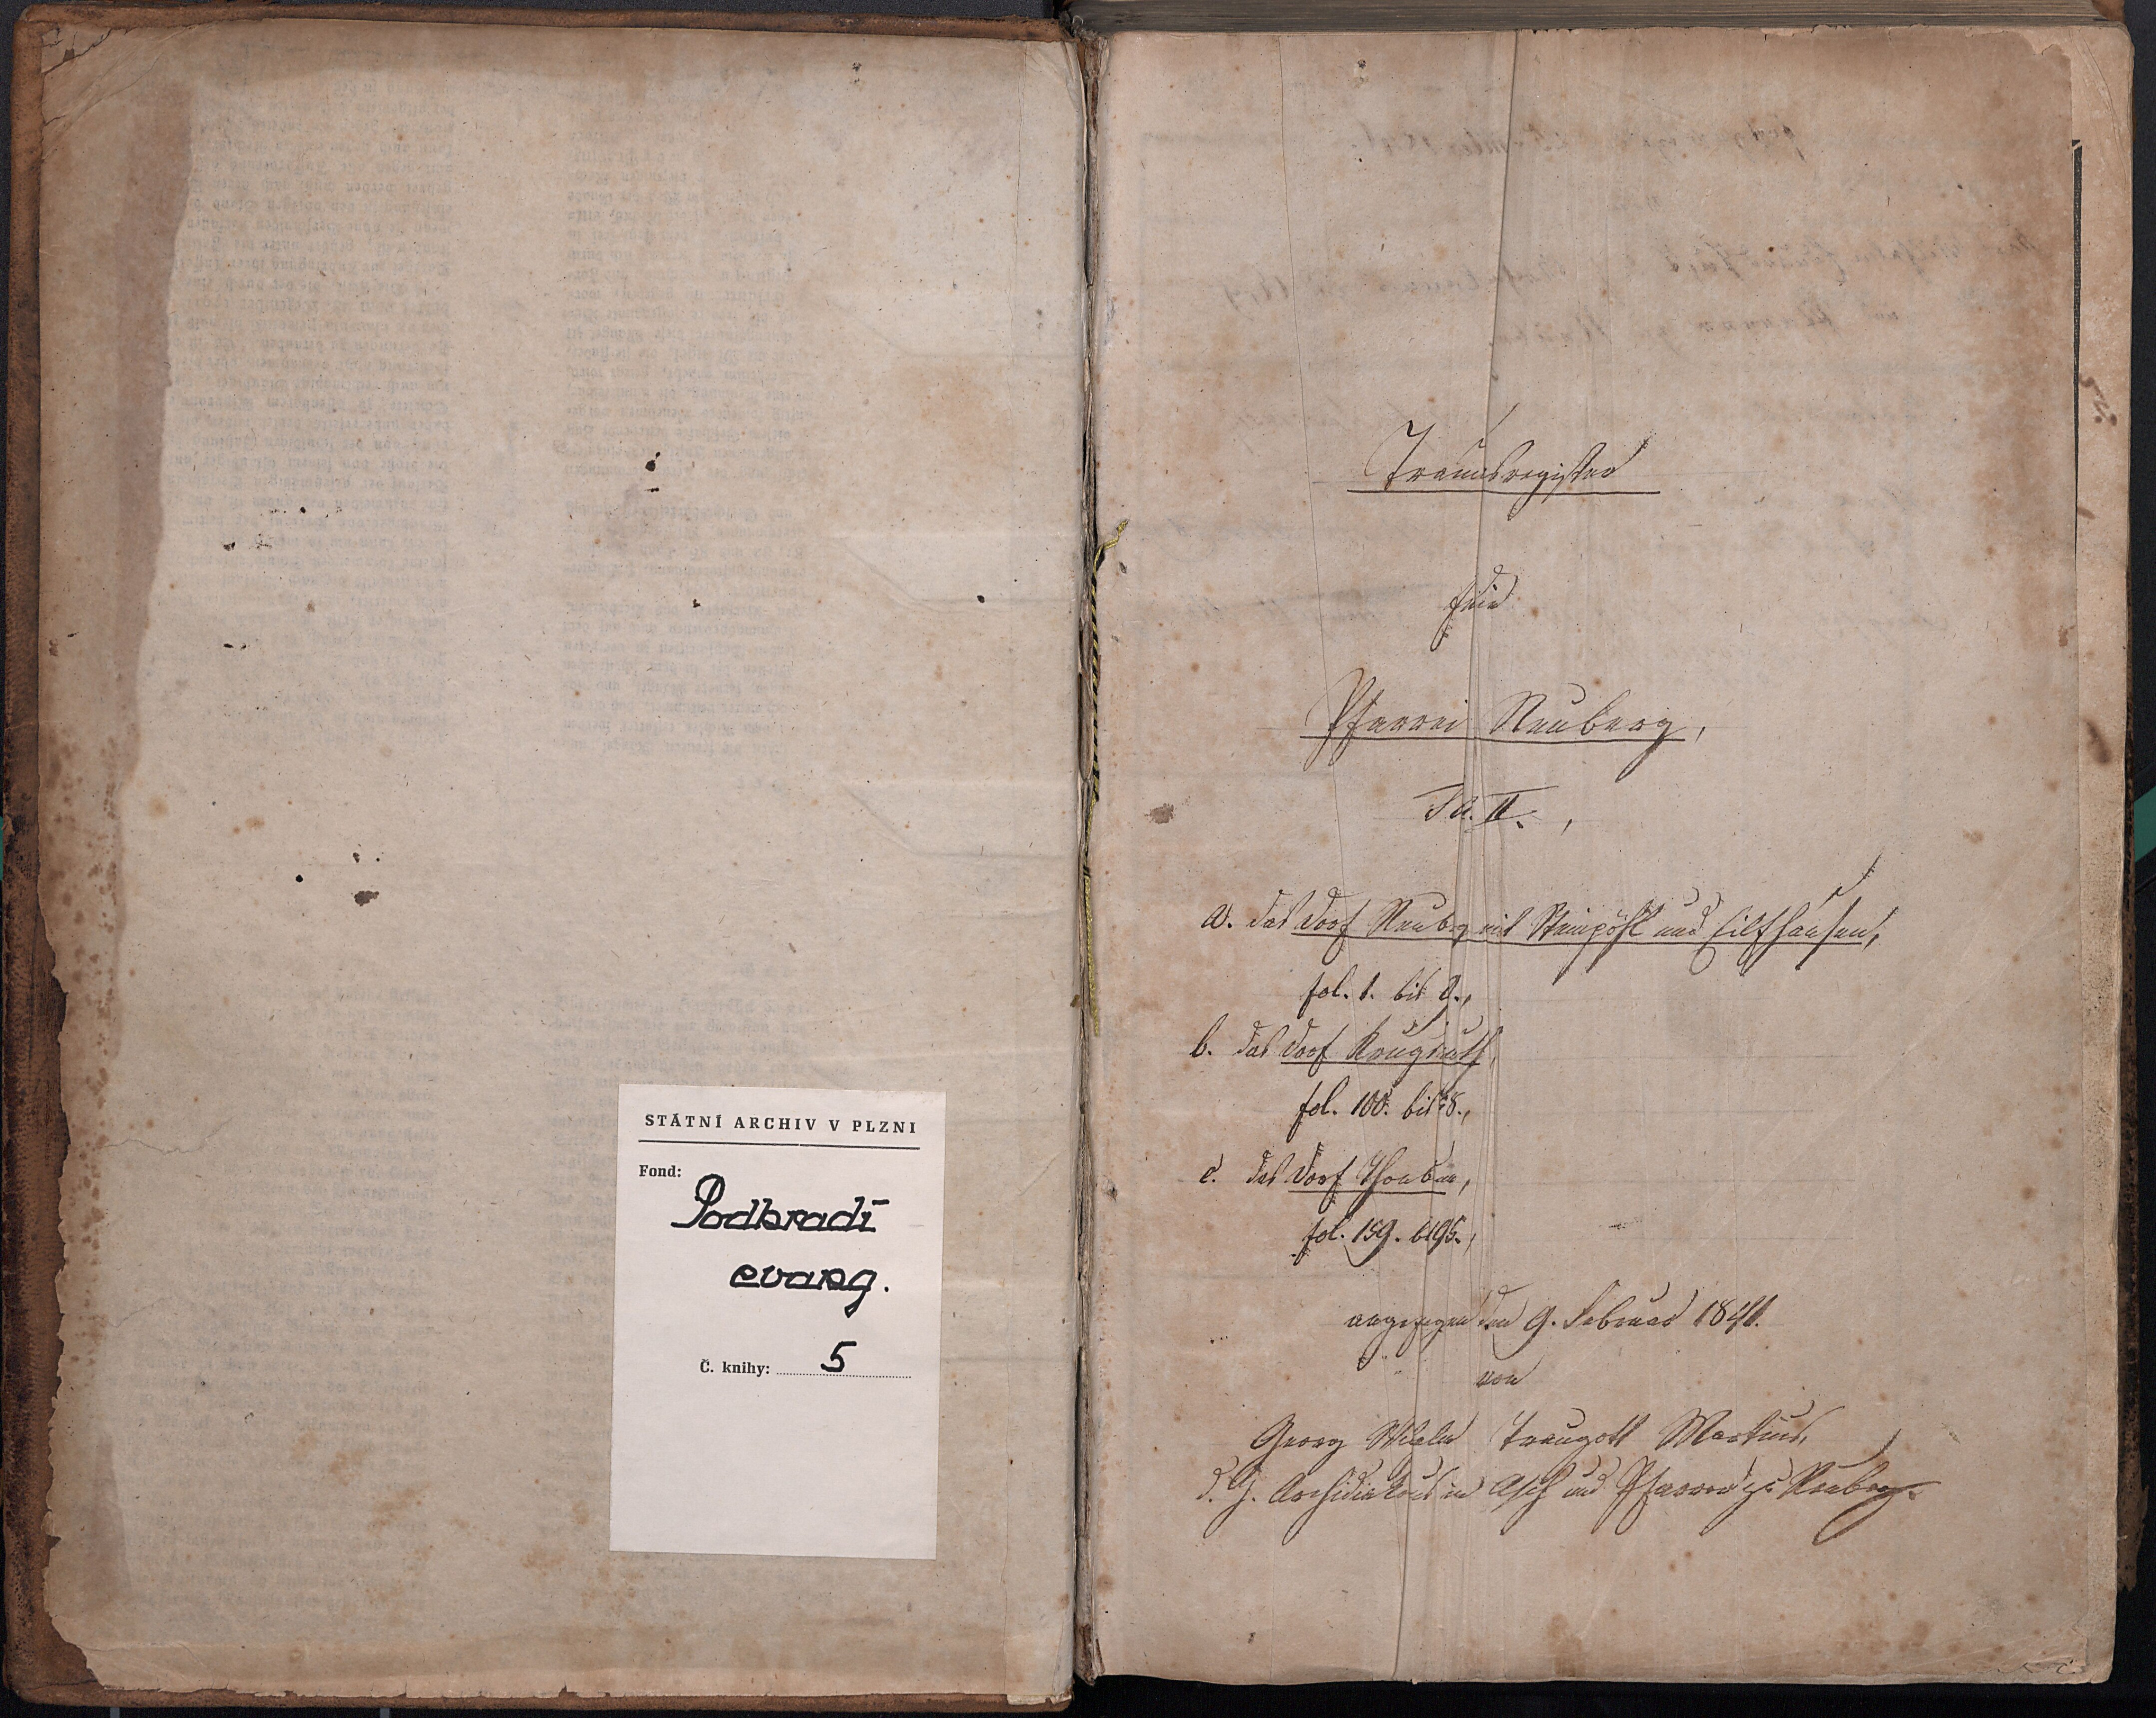 STÁTNÍ ARCHIV V PLZNI
Fond:
Podhradí
evang.
Č. knihy: 5
Trauungsregister
für
Pfarrei Neuberg,
II.,
a. das Dorf Neuberg mit Steinpöhl und Eilfhausen,
fol. 1. bis
b. das Dorf Krugsreuth,
fol. 100. bis
c. das Dorf Thonbrunn,
fol. 159.
angefangen den 9. Februar 1841.
von
Georg Traugott Martius,
d. Z. Archidiakonus in Asch und Pfarrer zu Neuberg.